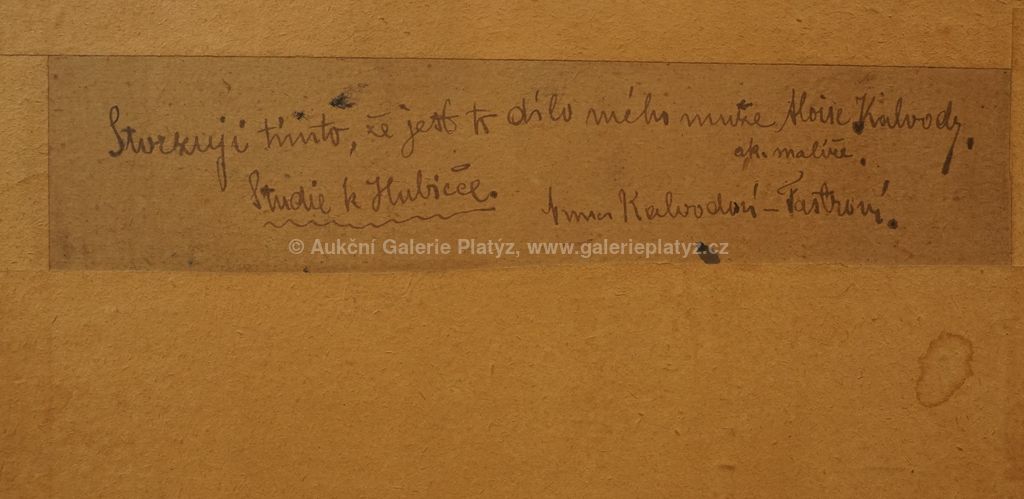 Stvrzuji tímto, že jest to dílo mého muže Aloise Kalvody,
ak. malíře.
Studie k Hubičce.
Anna Kalvodová-
© Aukční Galerie Platýz, www.galerieplatyz.cz